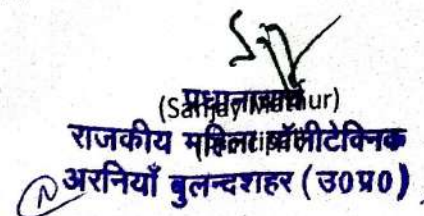 (Sanjay Mathur)
प्रधानाचार्य
राजकीय महिला पॉलीटेक्निक
अरनियाँ बुलन्दशहर (उ0प्र0)